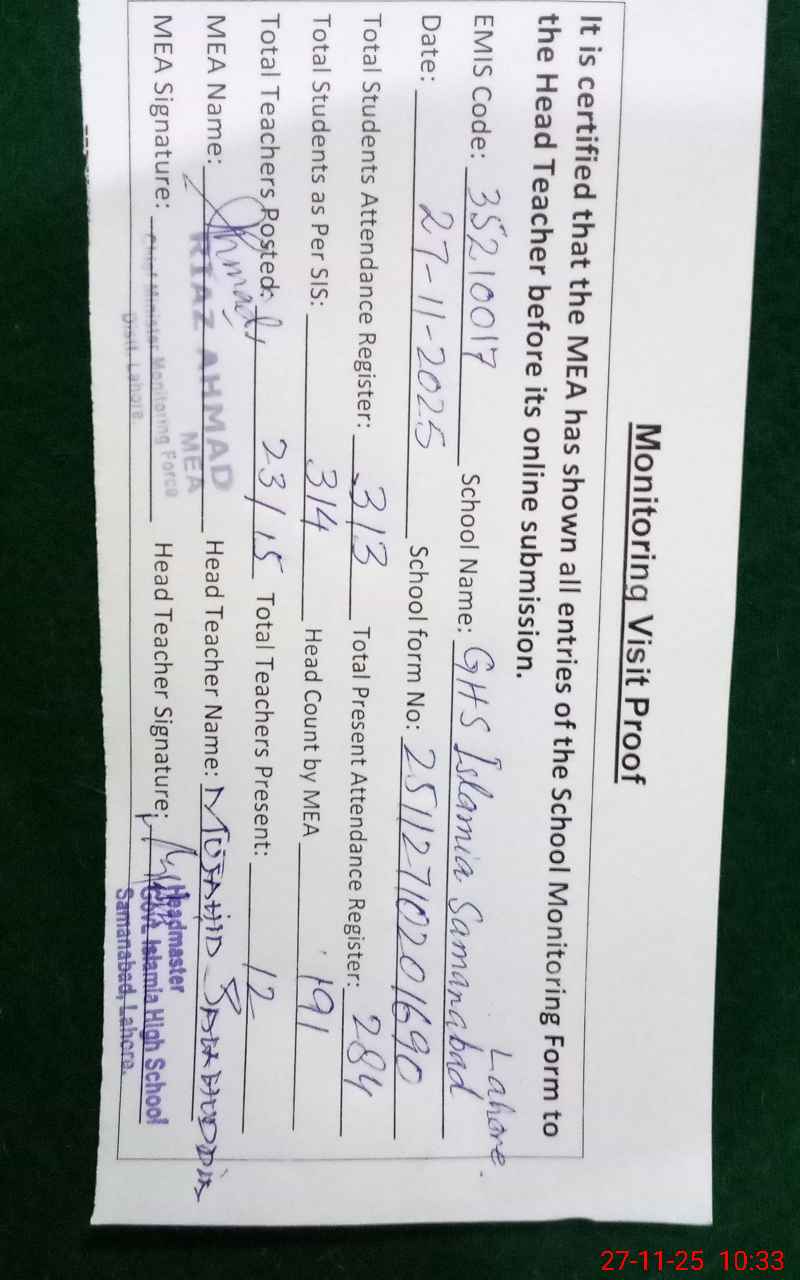 Monitoring Visit Proof
It is certified that the MEA has shown all entries of the School Monitoring Form to
the Head Teacher before its online submission.
Lahore.
EMIS Code: 35210017 School Name: GHS Islamia Samanabad
Date: 27-11-2025 School form No: 25112710201690
Total Students Attendance Register: 313 Total Present Attendance Register: 284
Total Students as Per SIS: 314 Head Count by MEA 191
Total Teachers Posted: 23/15 Total Teachers Present: 12
MEA Name: Ahmad Head Teacher Name:
RIAZ AHMAD
MEA
MEA Signature: Head Teacher Signature:
Chief Minister Monitoring Force
Distt. Lahore
Headmaster
Govt. Islamia High School
Samanabad, Lahore.
27-11-25 10:33